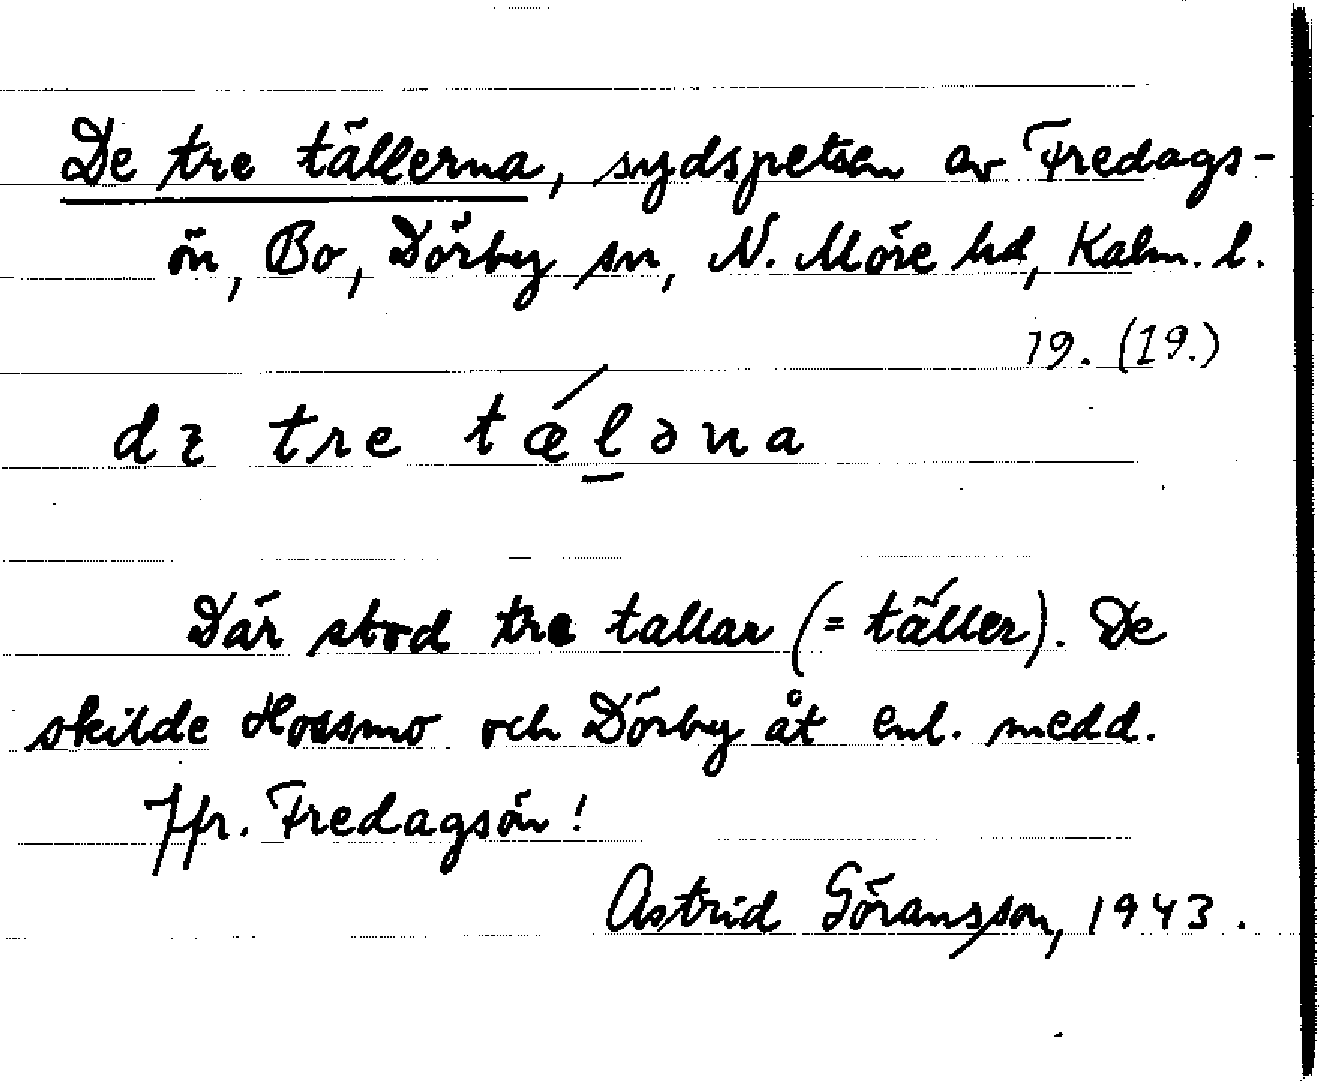 De tre tällerna, sydspetsen av Fredags-
ön, Bo, Dörby sn, N. Möre hd, Kalm. l.
19. (19.)
dɪ tre tǽl̠əna
Där stod tre tallar (= täller). De
skilde Hossmo och Dörby åt enl. medd.
Jfr. Fredagsön!
Astrid Göransson, 1943.